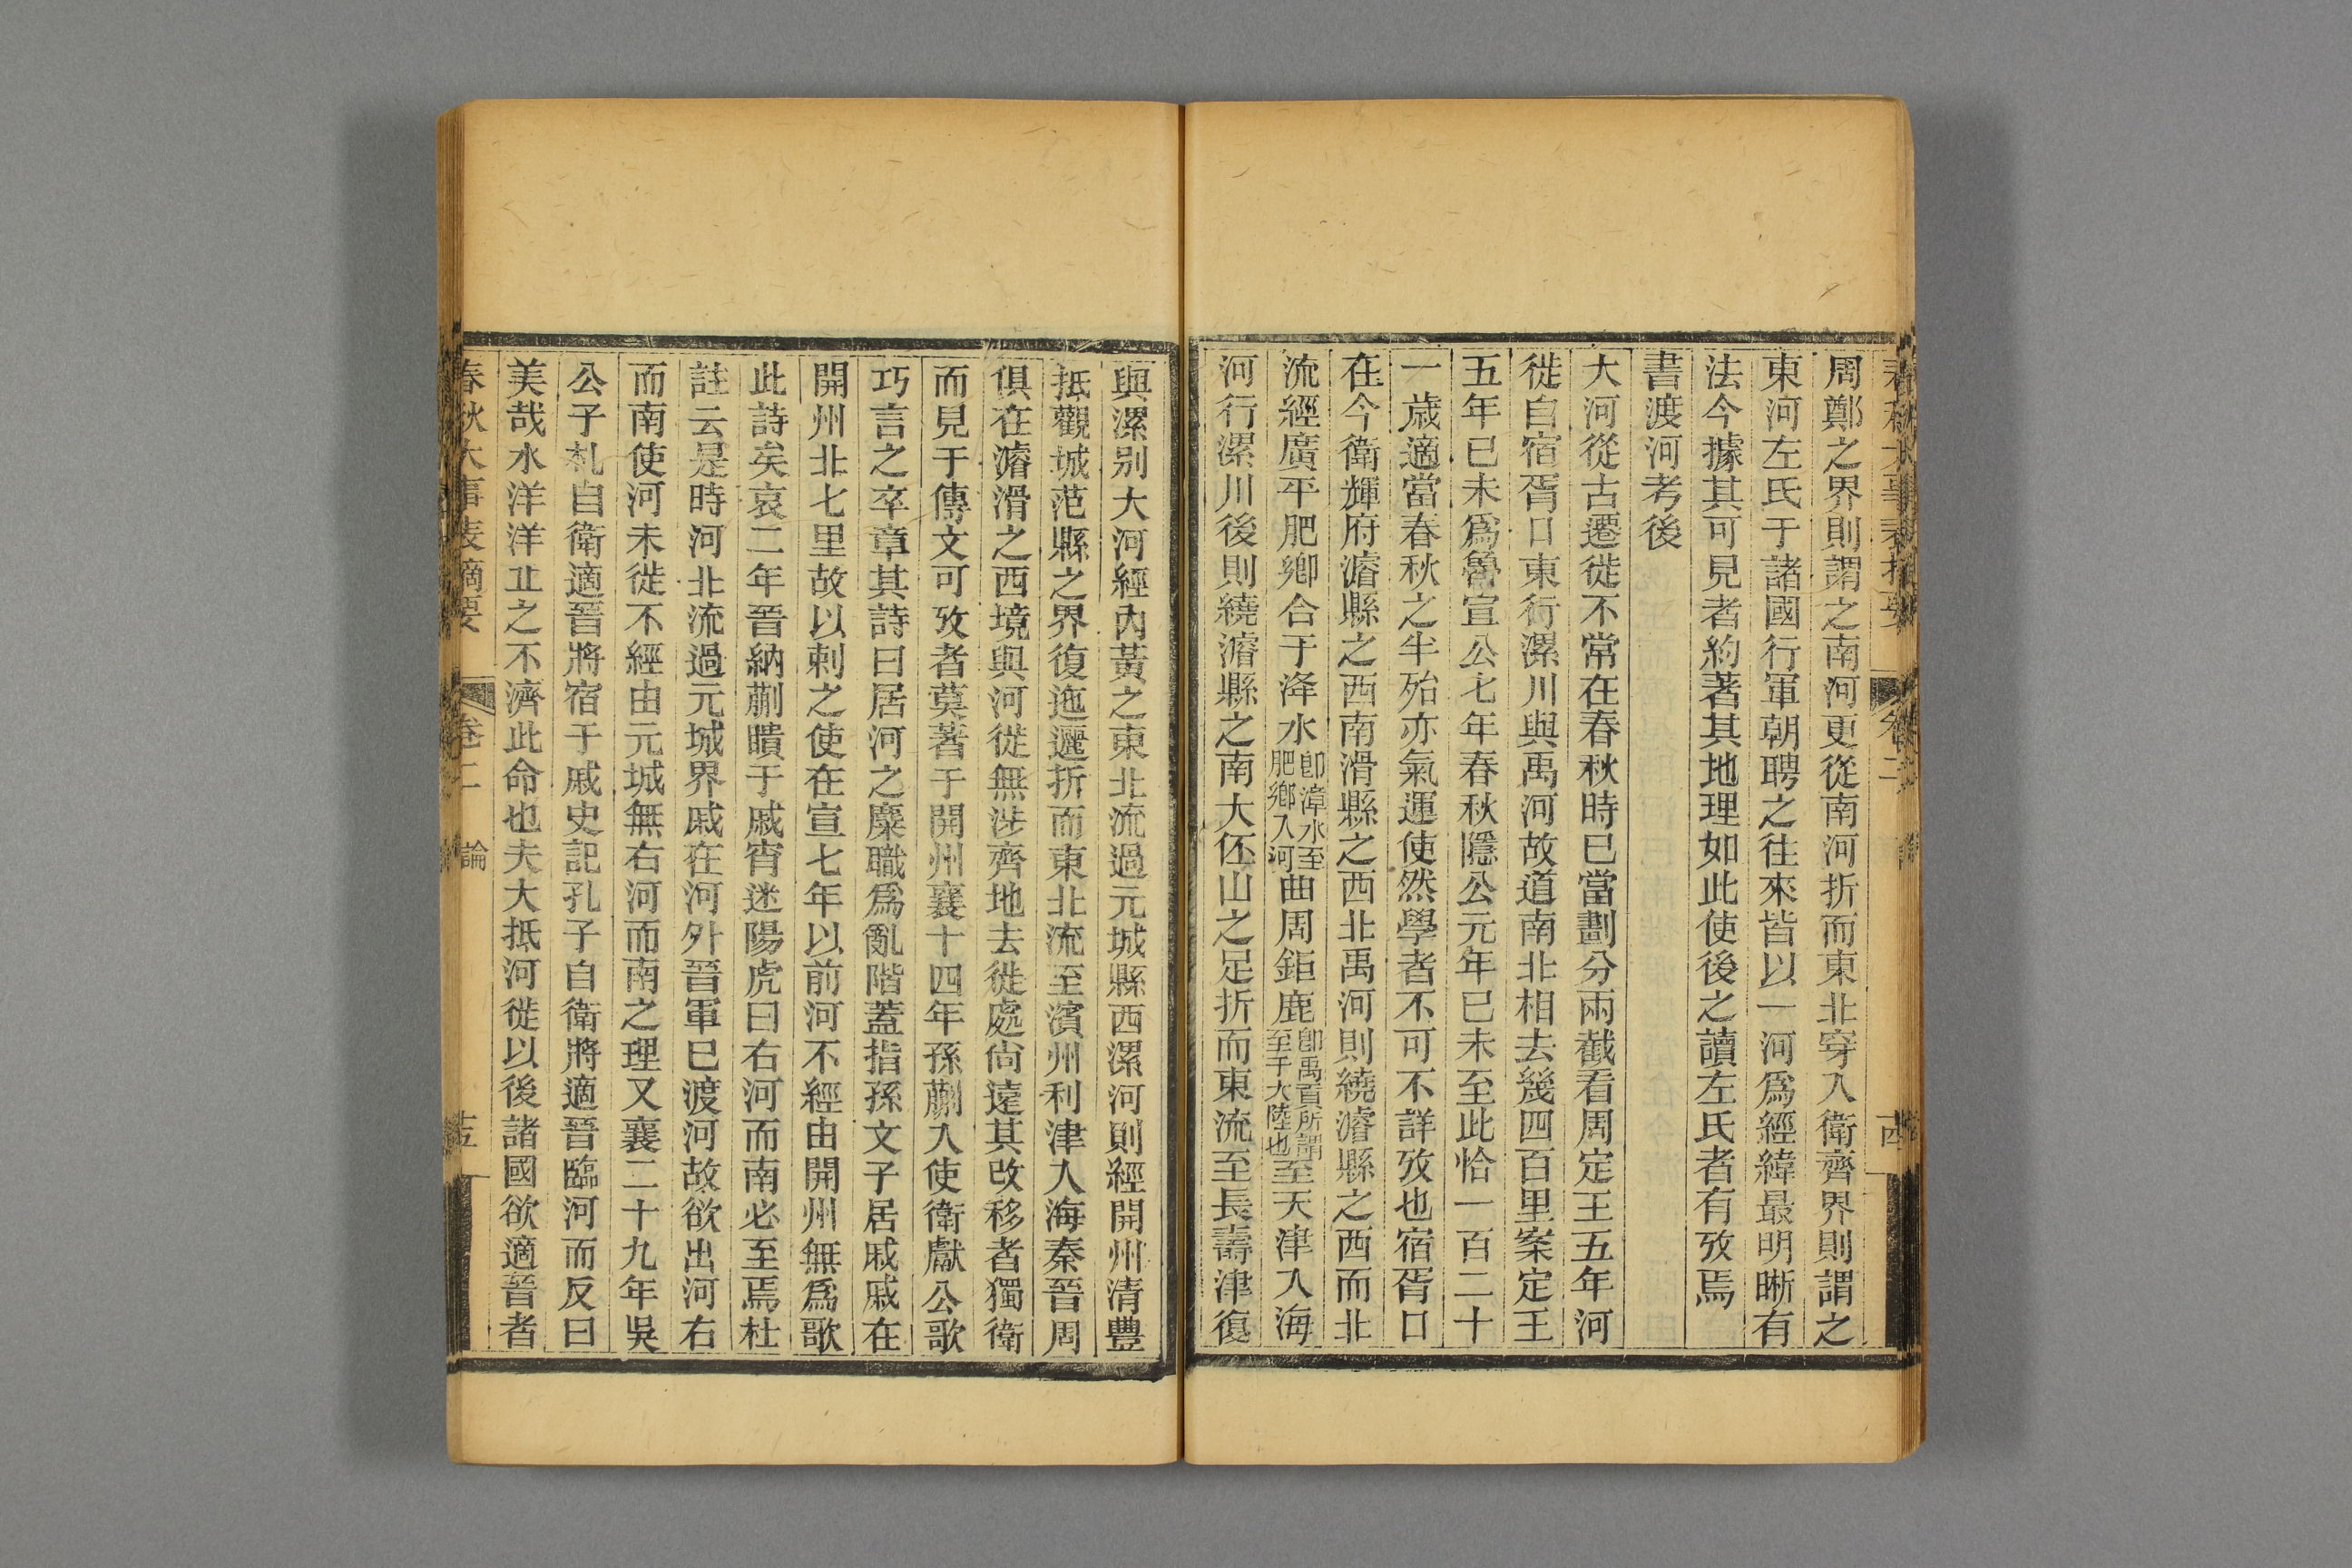 周鄭之界則謂之南河更從南河折而東北穿入衛齊界則謂之
東河左氏于諸國行軍朝聘之往來皆以一河爲經緯最明晰有
法今據其可見者約著其地理如此使後之讀左氏者有攷焉
書渡河考後
大河從古遷徙不常在春秋時已當劃分兩截看周定王五年河
徙自宿胥口東行漯川與禹河故道南北相去幾四百里案定王
五年已未爲魯宣公七年春秋隱公元年已未至此恰一百二十
一歲適當春秋之半殆亦氣運使然學者不可不詳攷也宿胥口
在今衛輝府濬縣之西南滑縣之西北禹河則繞濬縣之西而北
流經廣平肥鄉合于洚水卽漳水至肥鄉入河曲周鉅鹿卽禹貢所謂至于大陸也至天津入海
河行漯川後則繞濬縣之南大伾山之足折而東流至長壽津復
與漯别大河經內黃之東北流過元城縣西漯河則經開州清豐
抵觀城范縣之界復迤邐折而東北流至濱州利津入海秦晉周
俱在濬滑之西境與河徙無涉齊地去徙處尙遠其改移者獨衛
而見于傳文可攷者莫著于開州襄十四年孫蒯入使衛獻公歌
巧言之卒章其詩曰居河之麋職爲亂階蓋指孫文子居戚戚在
開州北七里故以刺之使在宣七年以前河不經由開州無爲歌
此詩矣哀二年晉納蒯聵于戚宵迷陽虎曰右河而南必至焉杜
註云是時河北流過元城界戚在河外晉軍已渡河故欲出河右
而南使河未徙不經由元城無右河而南之理又襄二十九年吳
公子札自衛適晉將宿于戚史記孔子自衛將適晉臨河而反曰
美哉水洋洋㐀之不濟此命也夫大抵河徙以後諸國欲適晉者
春秋大事表摘要 卷二 論 十五